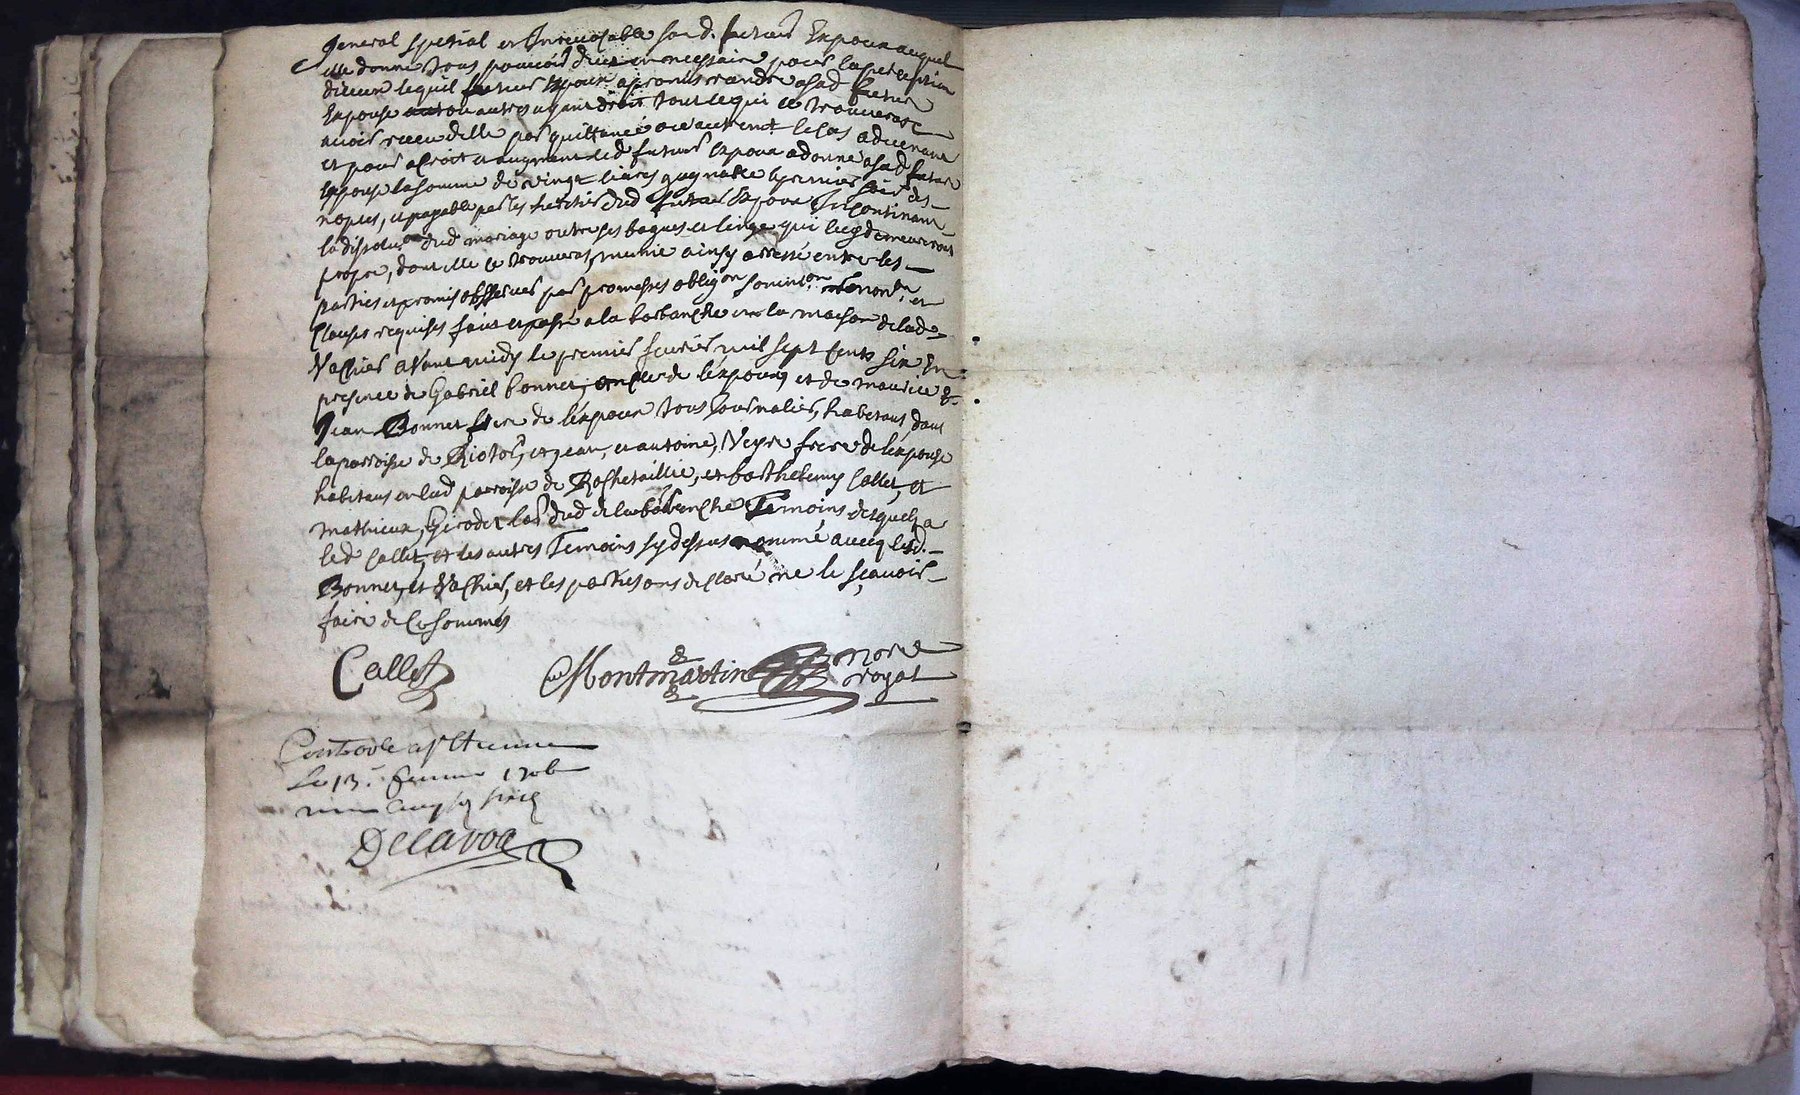 general special et Irrevocable sond. futeur Expoux auquel
elle donne tous pouvoirs de ce necessaire pour la perception
diceux lequel futeur Expoux a promis rendre a sad. future
Expouse ou autres ayant droit tout ce qui se trouverast
avoir receu delle par quittance ou autremt le cas advenant
et pour acroit et augment led futeur Expoux a donné a sad future
Expouse la somme de vingt livres gagnable le premier soir des
nopces, et payable par les heritiers dud futeur Expoux Incontinant
la dissolu.on dud mariage outre ses bagues et linge qui luy demeureront
propre, dont elle se trouveras, munie ainsy arresté entre les
parties et promis observer par promesses obligon soumis.on renon.on et
Clauses requises fait et passé a la barbanche en la maison de lad.
Vachier avant midy le premier fevrier mil sept cents six En
presence de Gabriel bonnet, oncle de lexpoux et de maurice &
Jean Bonnet frere de lexpoux tous Journalier, habitans dans
la parroisse de Riotor, et jean, et antoine, Veyre frere de lexpouse
habitans en lad parroisse de Rochetaillie, et barthelemy Callet, et
mathieux, Girodet lab dud de la barbanche Temoins desquels a
led Callet, et les autres Temoins sy dessus nommé avecq lesd.
Bonnet, et Vachier, et les parties ont declaré ne le sçavoir
faire de ce sommés
Callet Montmartin nore
royal
Controole a st Etienne
Le 13.e fevrier 1706
Delavoe